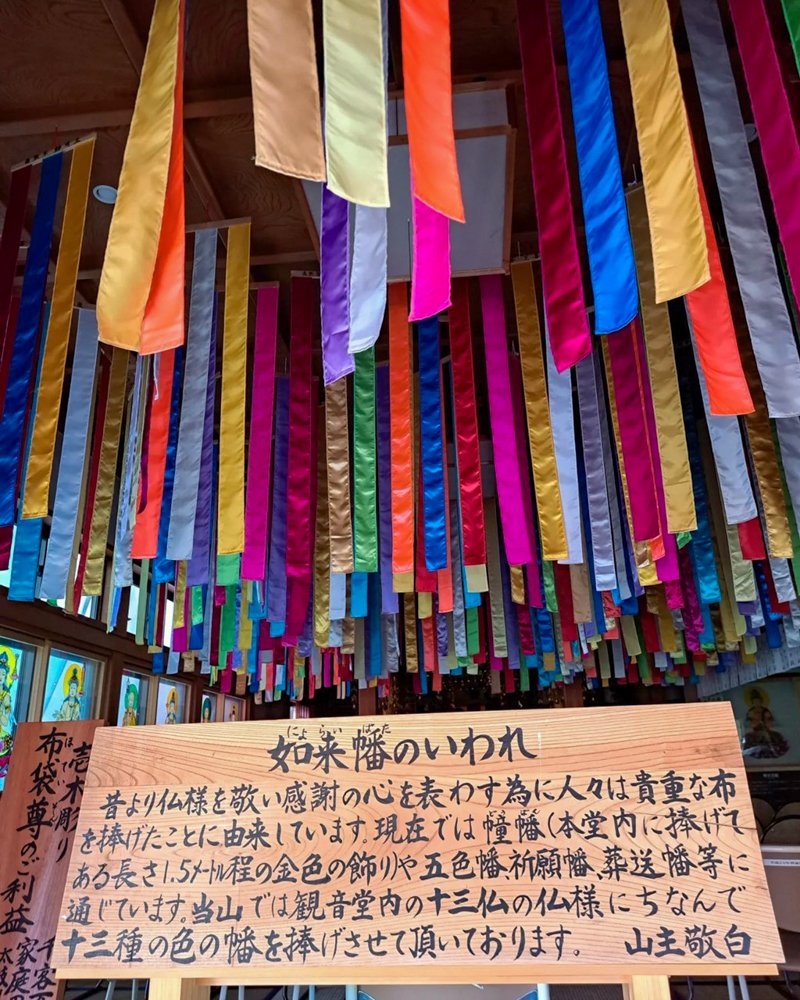 如来幡のいわれ
にょらいばた
昔より仏様を敬い感謝の心を表わす為に人々は貴重な布
を捧げたことに由来しています。現在では幢幡(本堂内に捧げて
ある長さ1.5メートル程の金色の飾り)や五色幡、祈願幡、葬送幡等に
通じています。当山では観音堂内の十三仏の仏様にちなんで
十三種の色の幡を捧げさせて頂いております。 山主敬白
布袋尊のご利益
ほていそん
千客万
家庭の